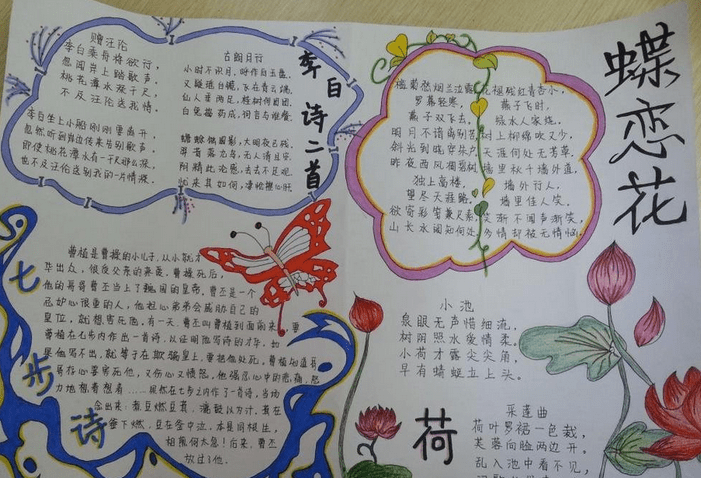 李白诗二首
赠汪伦
李白乘舟将欲行，
忽闻岸上踏歌声。
桃花潭水深千尺，
不及汪伦送我情。
李白坐上小船刚刚要离开，
忽然听到岸边传来告别歌声。
即使桃花潭水有一千尺那么深，
也不及汪伦送别我的一片情深。
古朗月行
小时不识月，呼作白玉盘。
又疑瑶台镜，飞在青云端。
仙人垂两足，桂树何团团。
白兔捣药成，问言与谁餐。
蟾蜍蚀圆影，大明夜已残。
羿昔落九乌，天人清且安。
阴精此沦惑，去去不足观。
忧来其如何，
蝶恋花
槛菊愁烟兰泣露
罗幕轻寒，
燕子双飞去。
明月不谙离别苦
斜光到晓穿朱户
昨夜西风凋碧树
独上高楼，
望尽天涯路。
欲寄彩笺兼尺素
山长水阔知何处
花褪残红青杏小，
燕子飞时，
绿水人家绕。
枝上柳绵吹又少，
天涯何处无芳草。
墙里秋千墙外道，
墙外行人，
墙里佳人笑。
笑渐不闻声渐笑，
多情却被无情恼。
七步诗
曹植是曹操的小儿子，从小就才
华出众，很受父亲的亲爱。曹操死后，
他的哥哥曹丕当上了魏国的皇帝。曹丕是一个
忌妒心很重的人，他担心弟弟会威胁自己的
皇位，就想害死他。有一天，曹丕叫曹植到面前来，要
曹植在七步内作出一首诗，以证明他写诗的才华。如
果他写不出，就等于在欺骗皇上，要把他处死。曹植知道哥
哥存心要害死他，又伤心又愤怒。他强忍心中的悲痛，努
力地想着想着……果然在七步之内作了一首诗，当场
念出来：煮豆燃豆萁，漉豉以为汁。萁在
釜下燃，豆在釜中泣。本是同根生，
相煎何太急！后来，曹丕
放过了他。
小池
泉眼无声惜细流，
树阴照水爱情柔。
小荷才露尖尖角，
早有蜻蜓立上头。
荷
采莲曲
荷叶罗裙一色裁，
芙蓉向脸两边开。
乱入池中看不见，